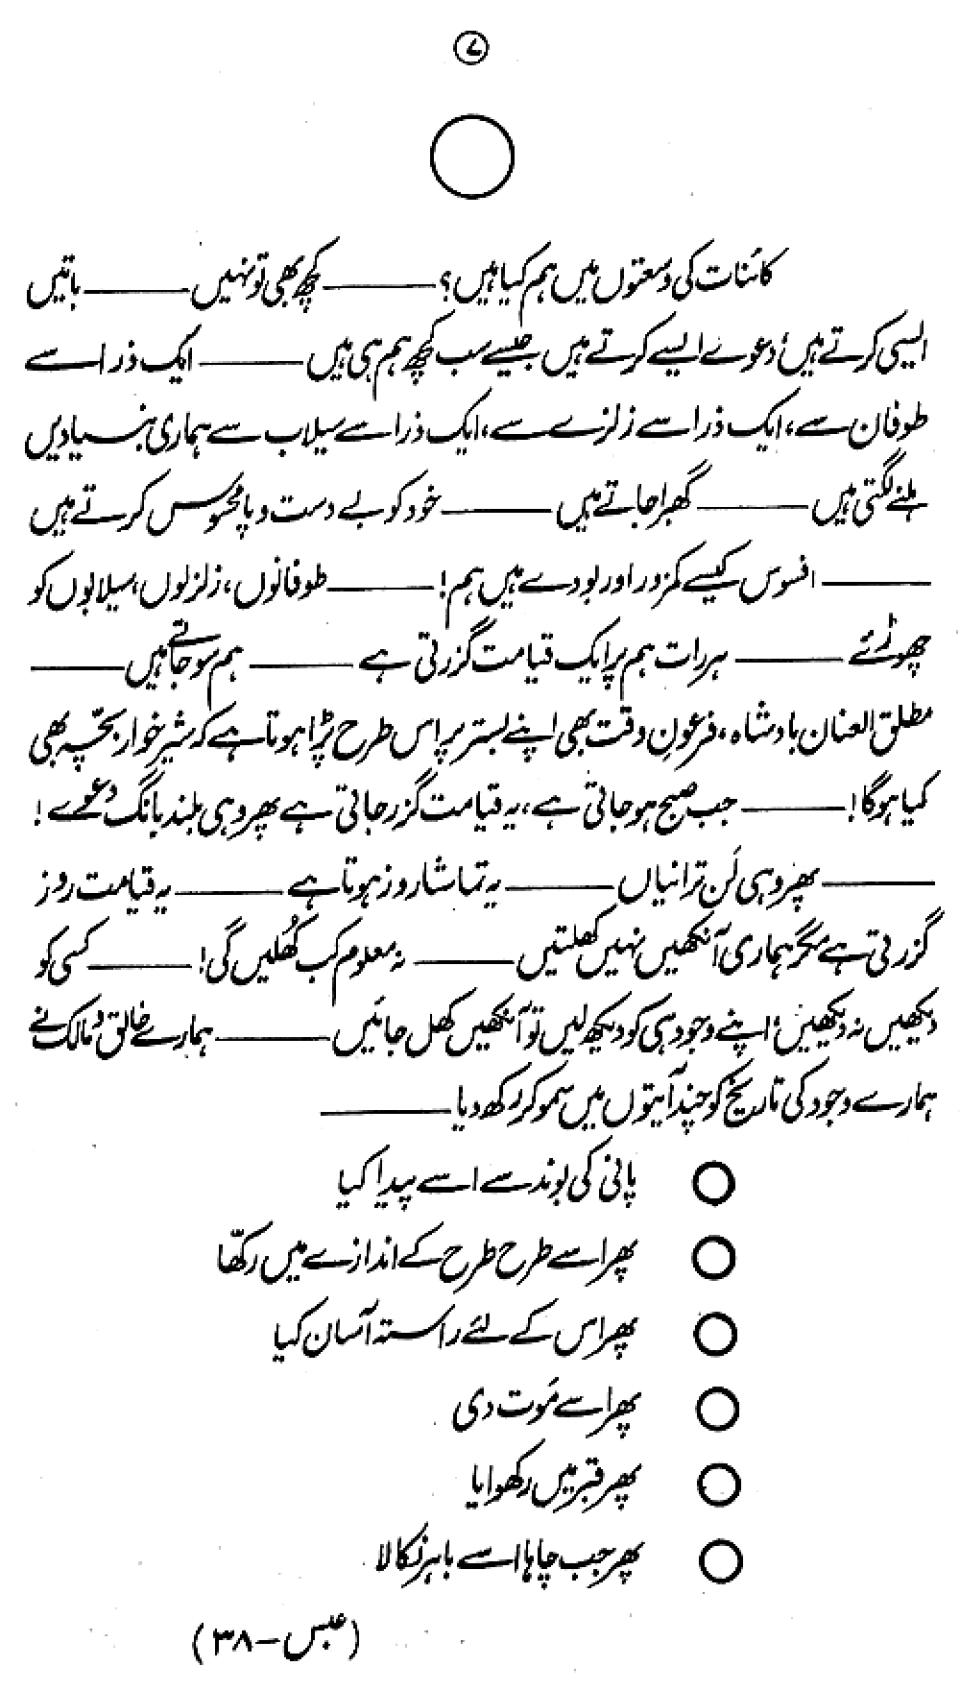 ۷
کائنات کی وسعتوں میں ہم کیا ہیں؟ ——— کچھ بھی تو نہیں ——— باتیں
ایسی کرتے ہیں، دعوے ایسے کرتے ہیں جیسے سب کچھ ہم ہی ہیں ——— ایک ذرا سے
طوفان سے، ایک ذرا سے زلزلے سے، ایک ذرا سے سیلاب سے ہماری بنیادیں
ہلنے لگتی ہیں ——— گھبرا جاتے ہیں ——— خود کو بے دست و پا محسوس کرتے ہیں
——— افسوس کیسے کمزور اور بودے ہیں ہم! ——— طوفانوں، زلزلوں، سیلابوں کو
چھوڑئے ——— ہر رات ہم پر ایک قیامت گزرتی ہے ——— ہم سو جاتے ہیں ———
مطلق العنان بادشاہ، فرعونِ وقت بھی اپنے بستر پر اس طرح پڑا ہوتا ہے کہ شیر خوار بچّہ بھی
کیا ہوگا! ——— جب صبح ہو جاتی ہے، یہ قیامت گزر جاتی ہے پھر وہی بلند بانگ دعوے!
——— پھر وہی لَن ترانیاں ——— یہ تماشا روز ہوتا ہے ——— یہ قیامت روز
گزرتی ہے مگر ہماری آنکھیں نہیں کھلتیں ——— نہ معلوم کب کُھلیں گی! ——— کسی کو
دیکھیں نہ دیکھیں، اپنے وجود ہی کو دیکھ لیں تو آنکھیں کھل جائیں ——— ہمارے خالق و مالک نے
ہمارے وجود کی تاریخ کو چند آیتوں میں سمو کر رکھ دیا ———
○ پانی کی بوند سے اسے پیدا کیا
○ پھر اسے طرح طرح کے اندازے میں رکھّا
○ پھر اس کے لئے راستہ آسان کیا
○ پھر اسے مَوت دی
○ پھر قبر میں رکھوایا
○ پھر جب چاہا اسے باہر نکالا
(عبس – ۳۸)